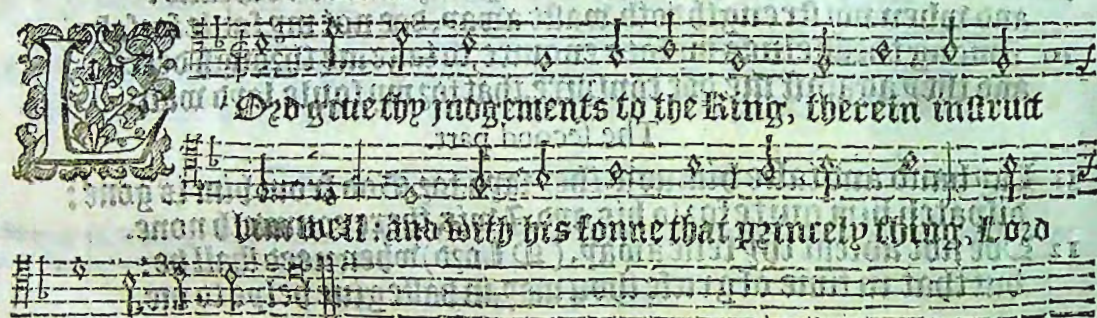 LOrd giue thy iudgements to the King, therein instruct
him well: and with his sonne that princely thing, Lord